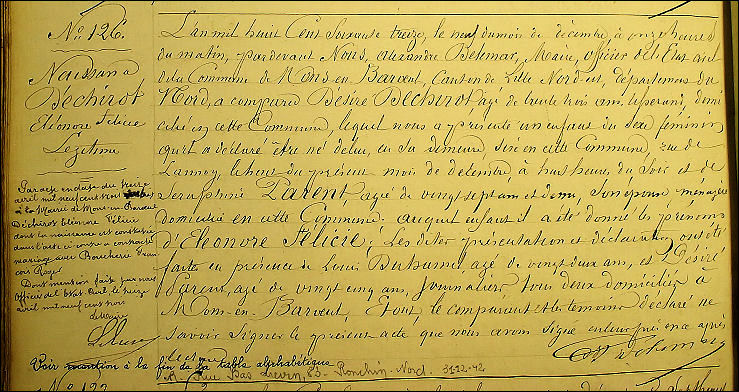 N° 126.
Naissance
Déchirot
Eléonore Félicie
Légitime
Par acte en date du treize
avril mil neuf cent trois
à la Mairie de Mons en Baroeul
Déchirot Eléonore Félicie
dont la naissance est constatée
dans l'acte ci contre a contracté
mariage avec Boucherie Fran
çois
Dont mention faite par nous
Officier de l'Etat Civil le treize
avril mil neuf cent trois
L'an mil huit Cent Soixante treize, le neuf du mois de décembre, à onze heures
du matin, pardevant Nous, alexandre Delemar, Maire, officier de l'Etat civil
de la Commune de Mons en Baroeul, Canton de Lille Nord-est, département du
Nord, a comparu Désiré Déchirot agé de trente trois ans, tisserand, domi
cilié en cette Commune, lequel nous a présenté un enfant du sexe féminin
qu'il a déclaré être né de lui, en sa demeure, sise en cette Commune, rue de
Lannoy, le huit du présent mois de décembre, à huit heures du Soir et de
Séraphine Parent, agée de vingt sept ans et demi, son épouse, ménagère
domiciliée en cette Commune. auquel enfant il a été donné les prénoms
d'Eléonore Félicie; Les dites présentation et déclaration ont été
faites en présence de Louis Duhamel, agé de vingt deux ans, et Désiré
Parent, agé de vingt cinq ans, Journaliers tous deux domiciliés à
Mons-en-Baroeul, Et ont, le comparant et les témoins déclaré ne
savoir signer le présent acte que nous avons signé
Voir mention à la fin de la table alphabétique
Rue Bas Liévin, 23. Ronchin-Nord. 31-12-42
N° 127